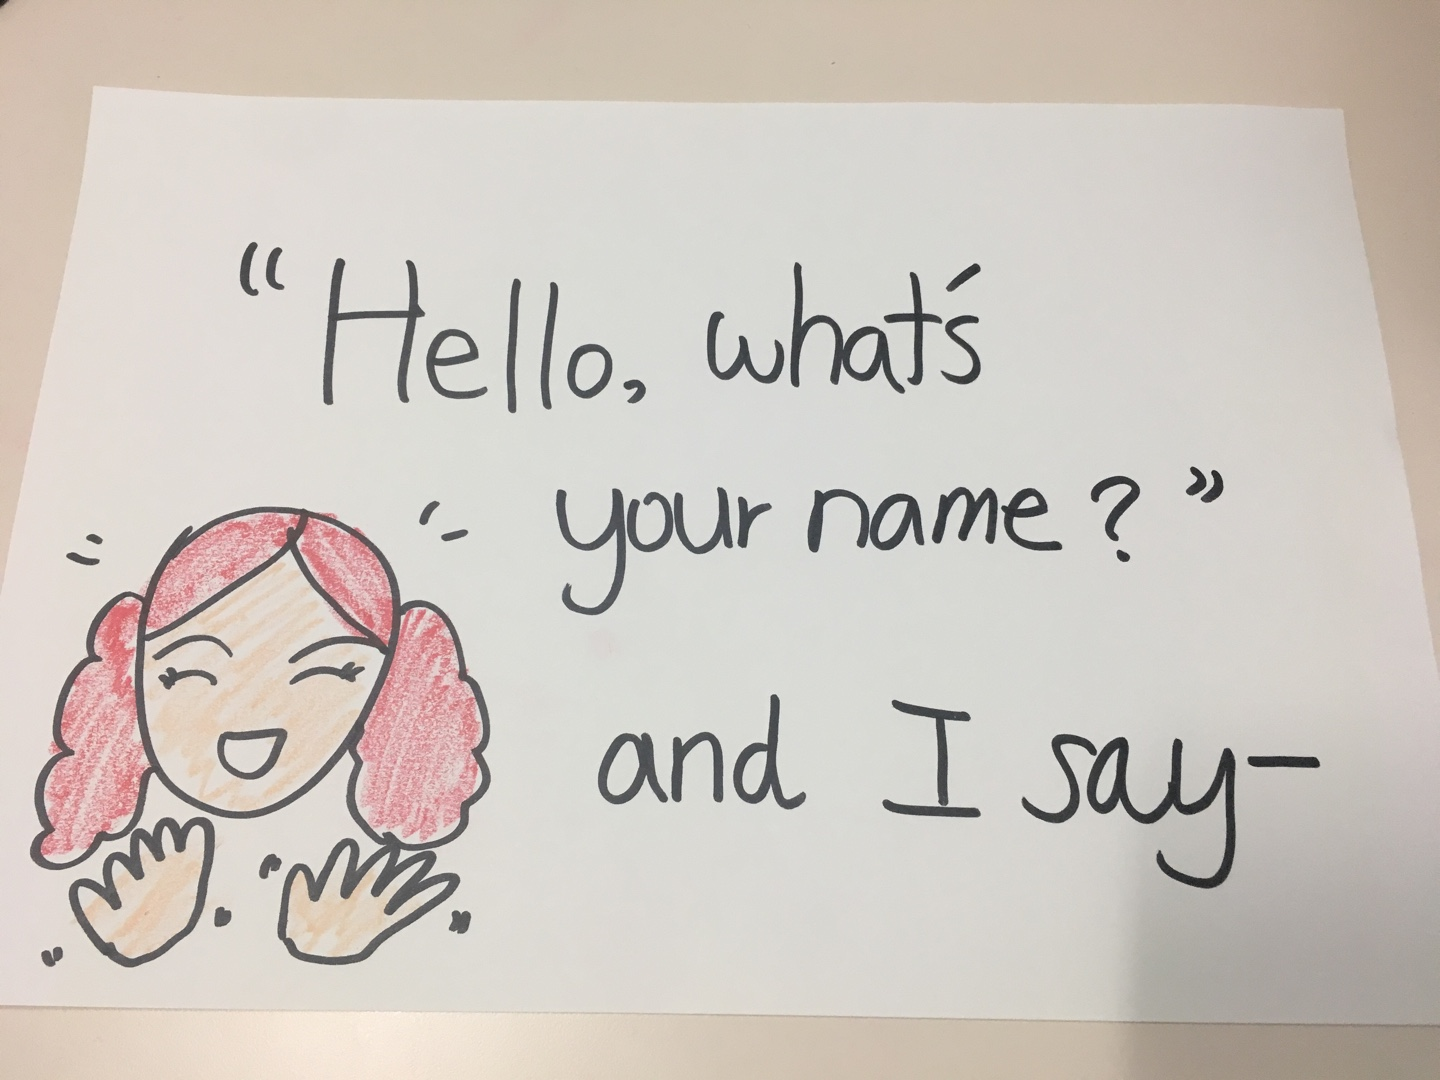 “Hello, what's
your name?”
and I say-